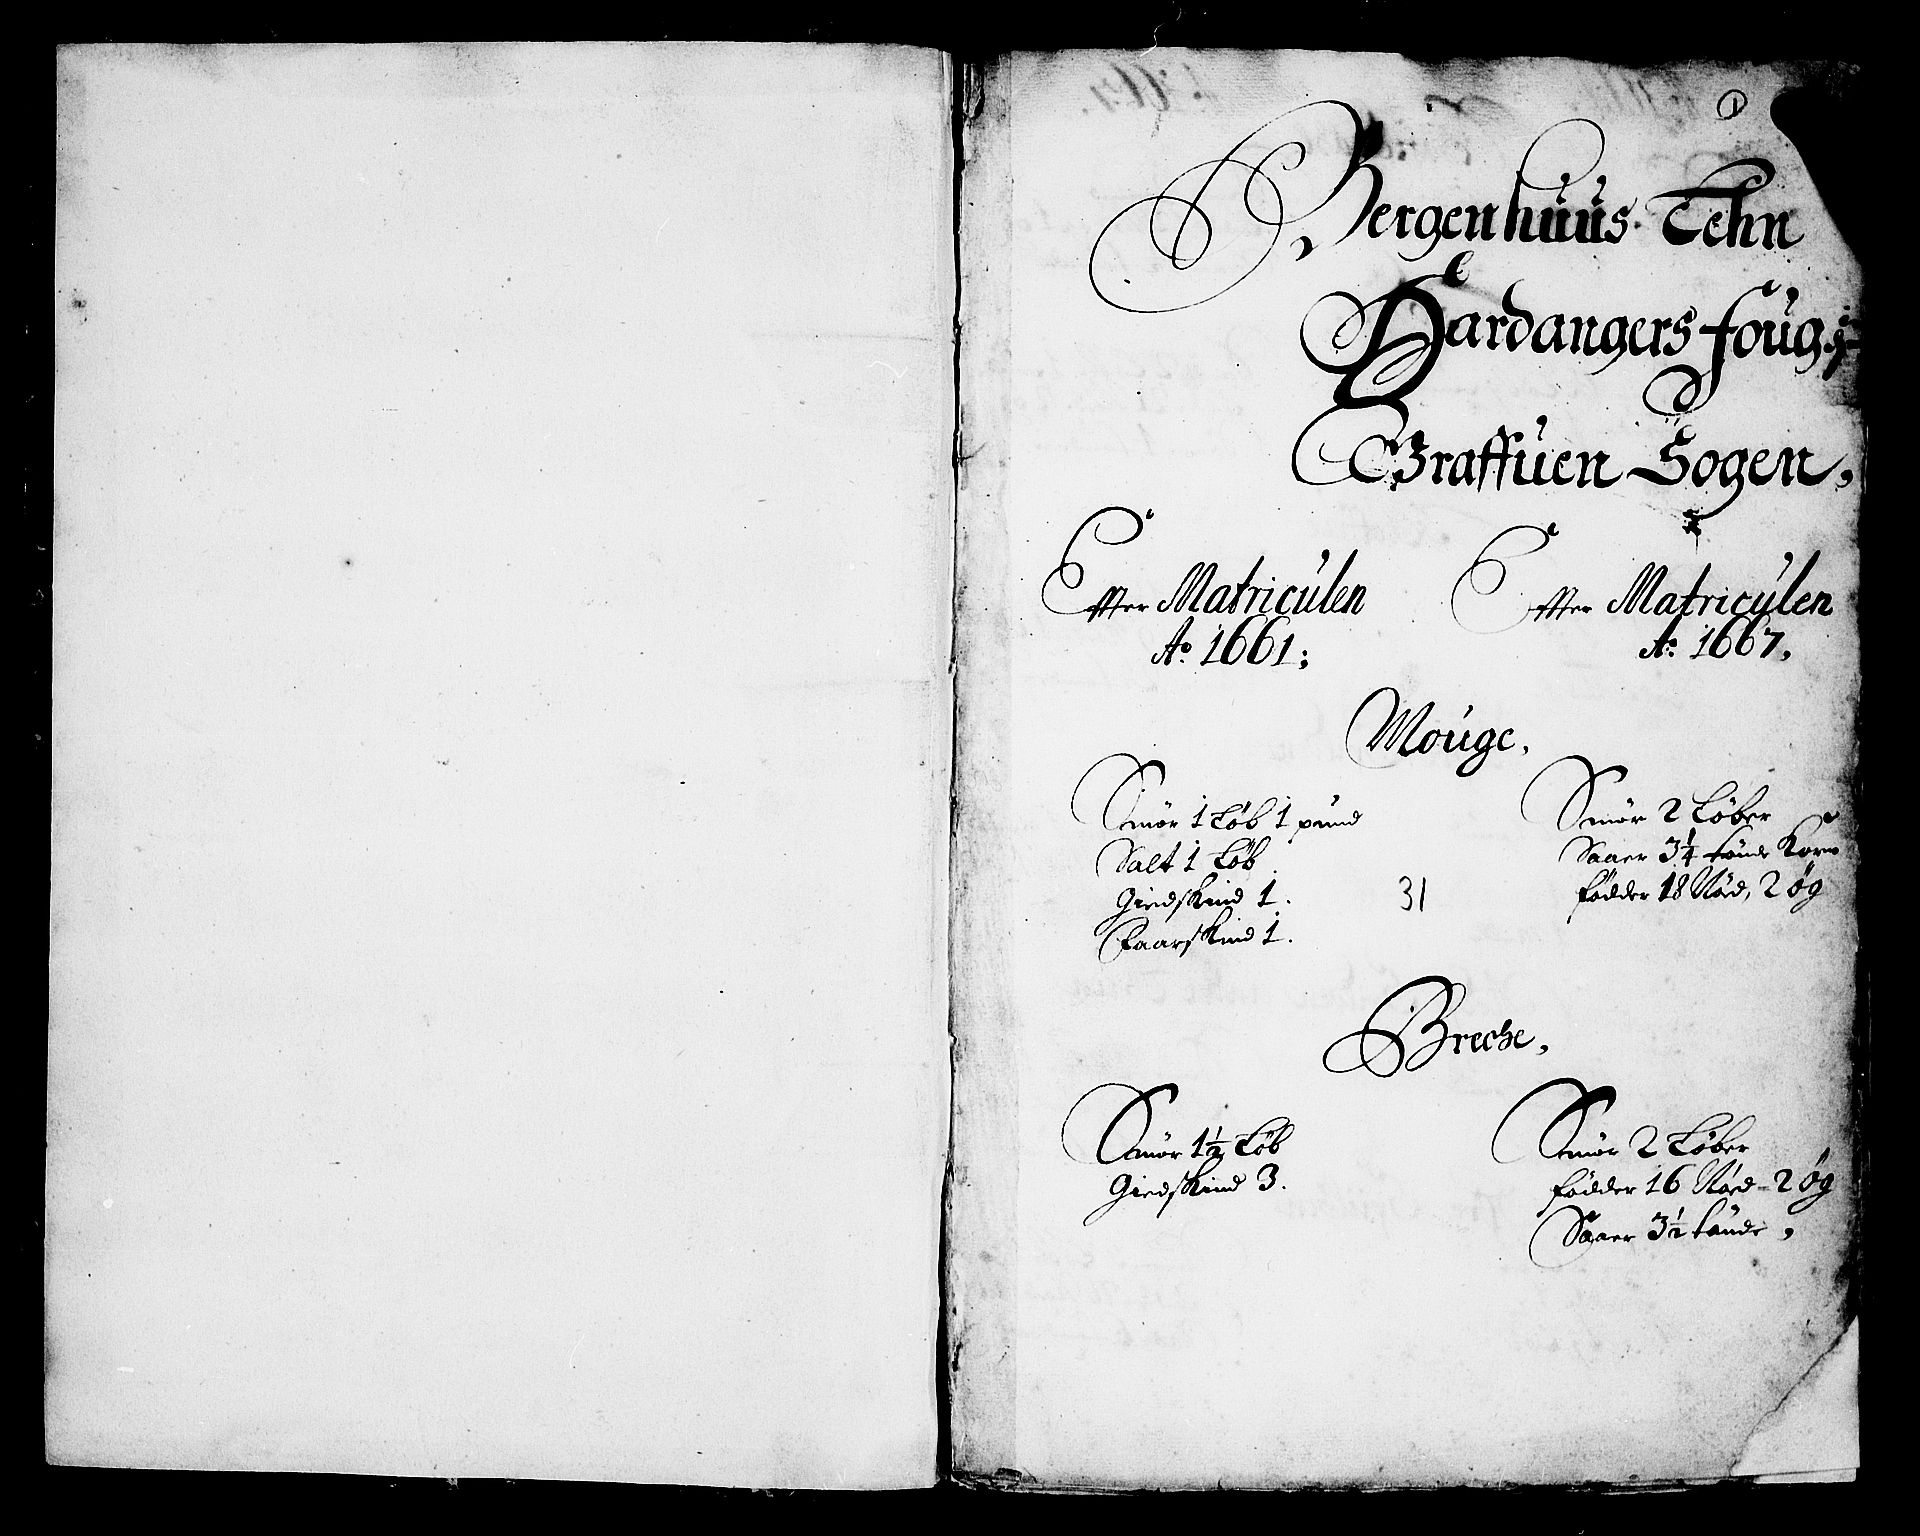 1
Bergenhüüs Lehn
Hardangers foug:
Graffüen Sogen,
Effter Matricülen
Ao. 1661;
Effter Matricülen
Ao. 1667,
Moüge,
Smör 1 Løb 1 pünd
Salt 1 Løb
Giedskind 1.
Faarskind 1.
31
Smör 2 Løber
Saaer 3¼ tönde Korn
födder 18 Nöd, 2 øg
Breche,
Smör 1½ Løb
Giedskind 3.
Smör 2 Løber
födder 16 Nöd - 2 øg
Saaer 3½ tönde,